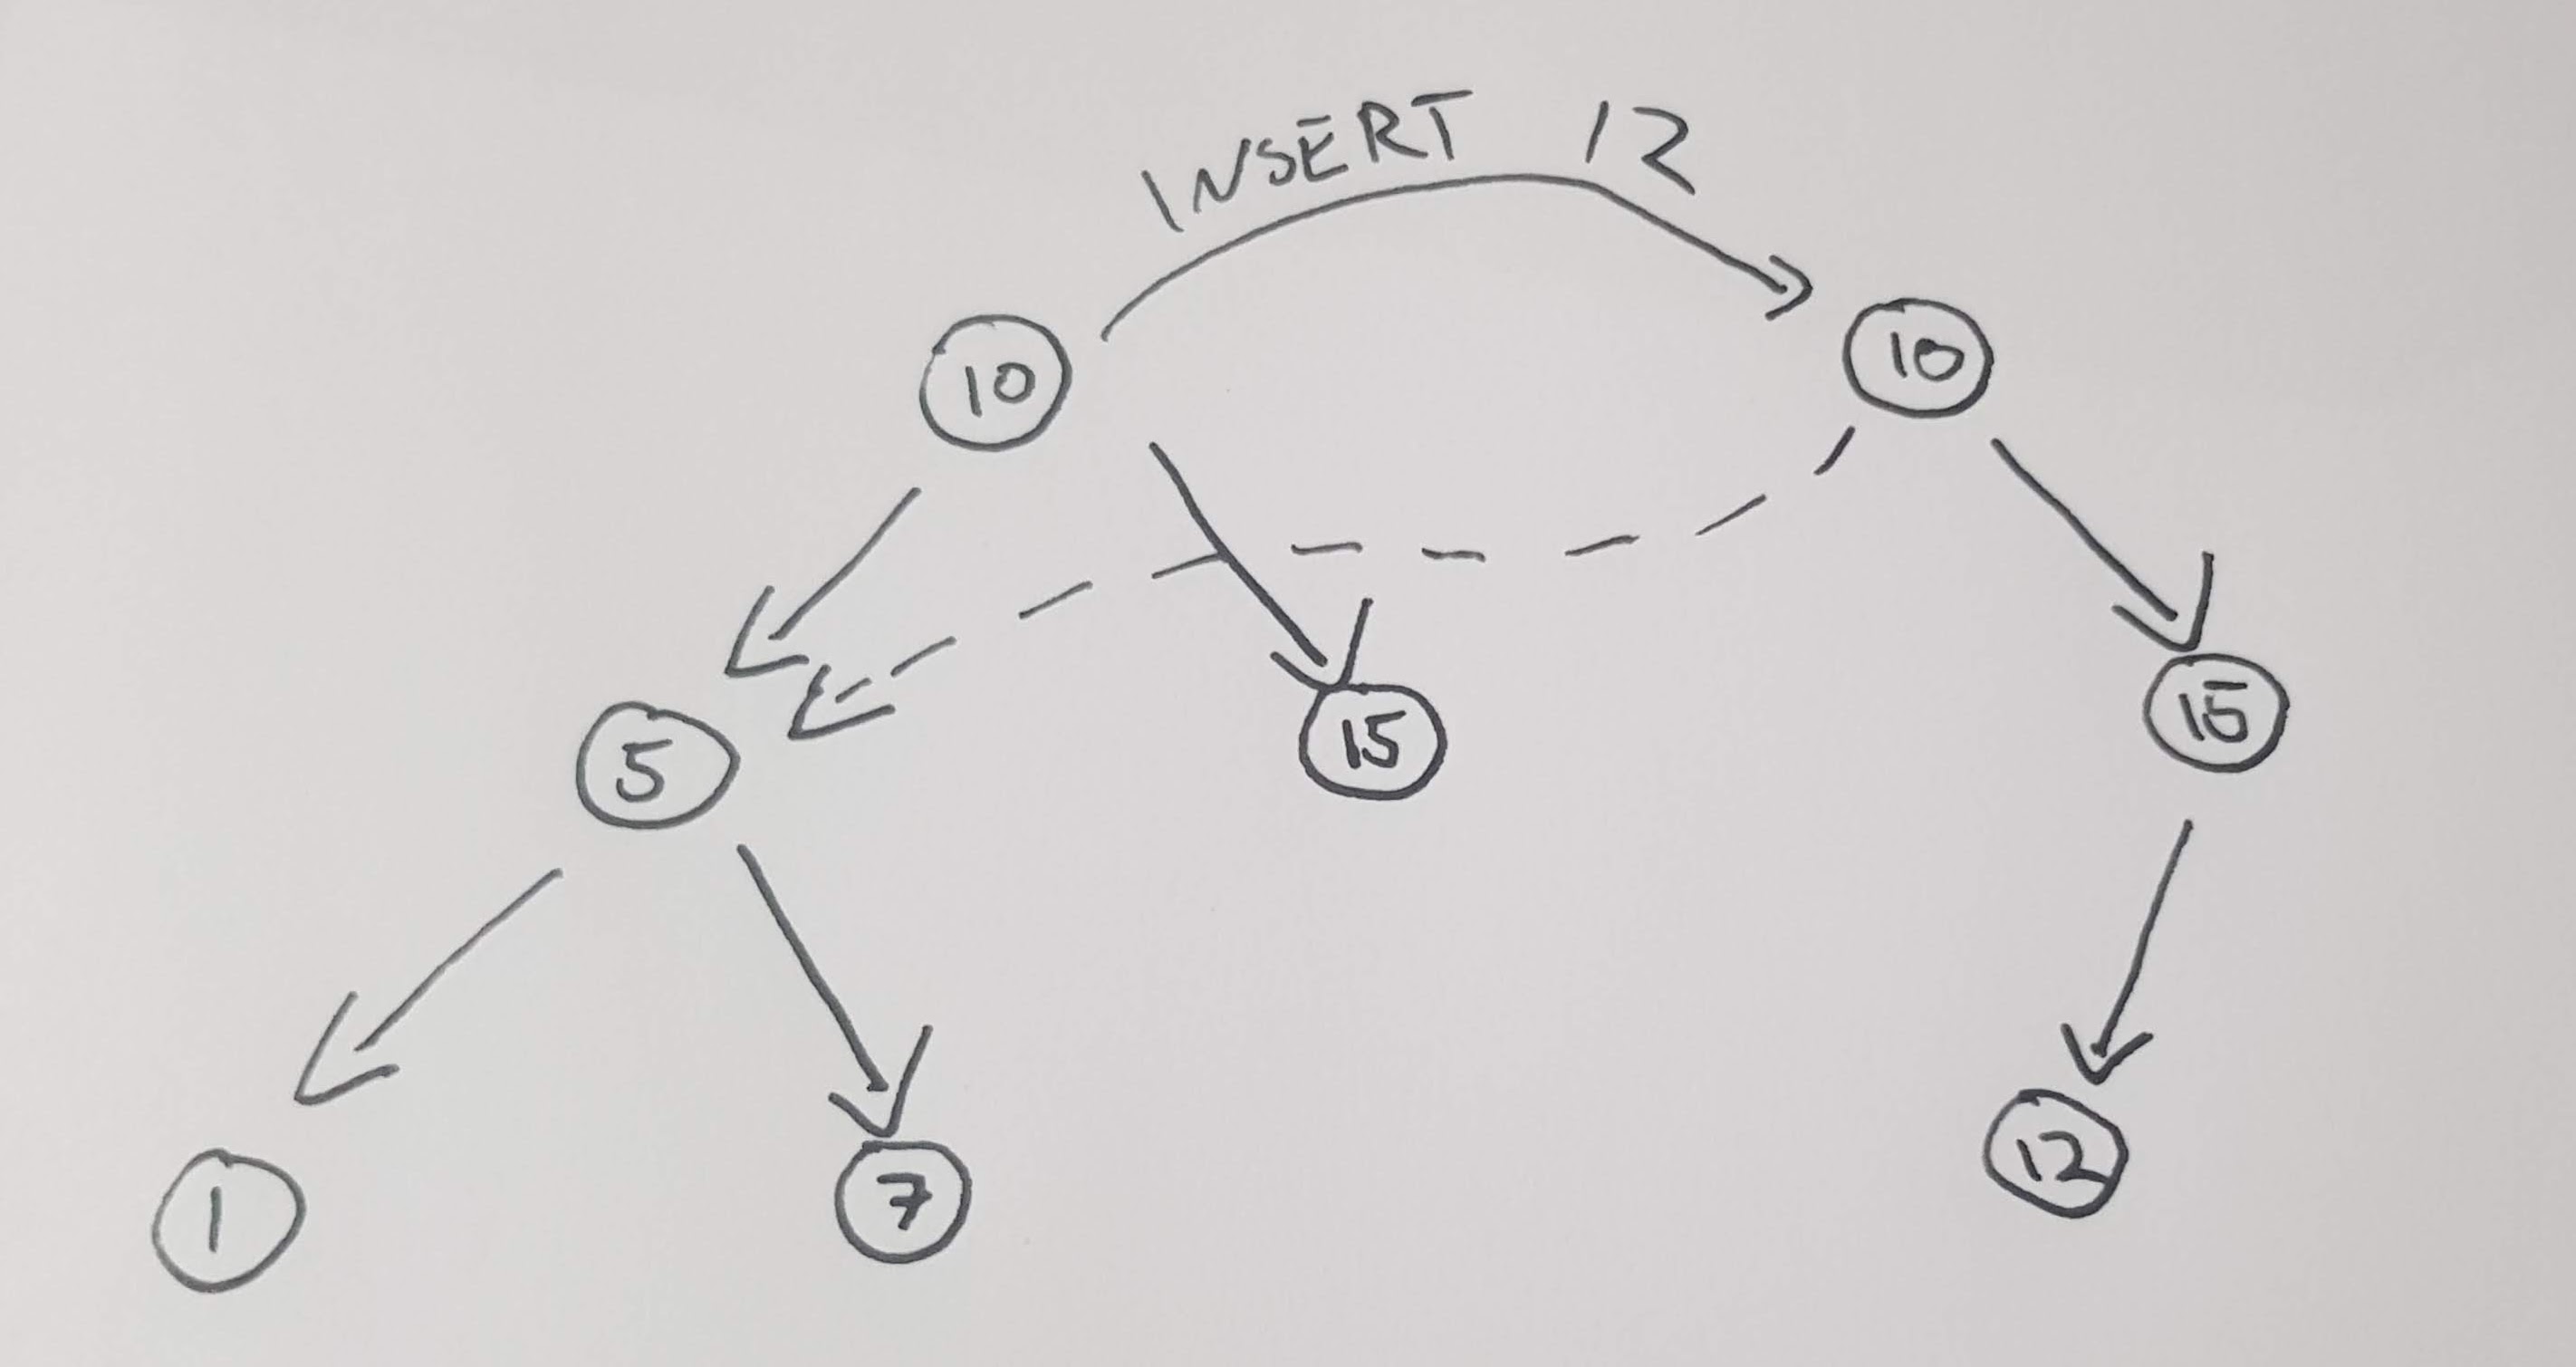 INSERT 12
10
10
5
15
15
1
7
12